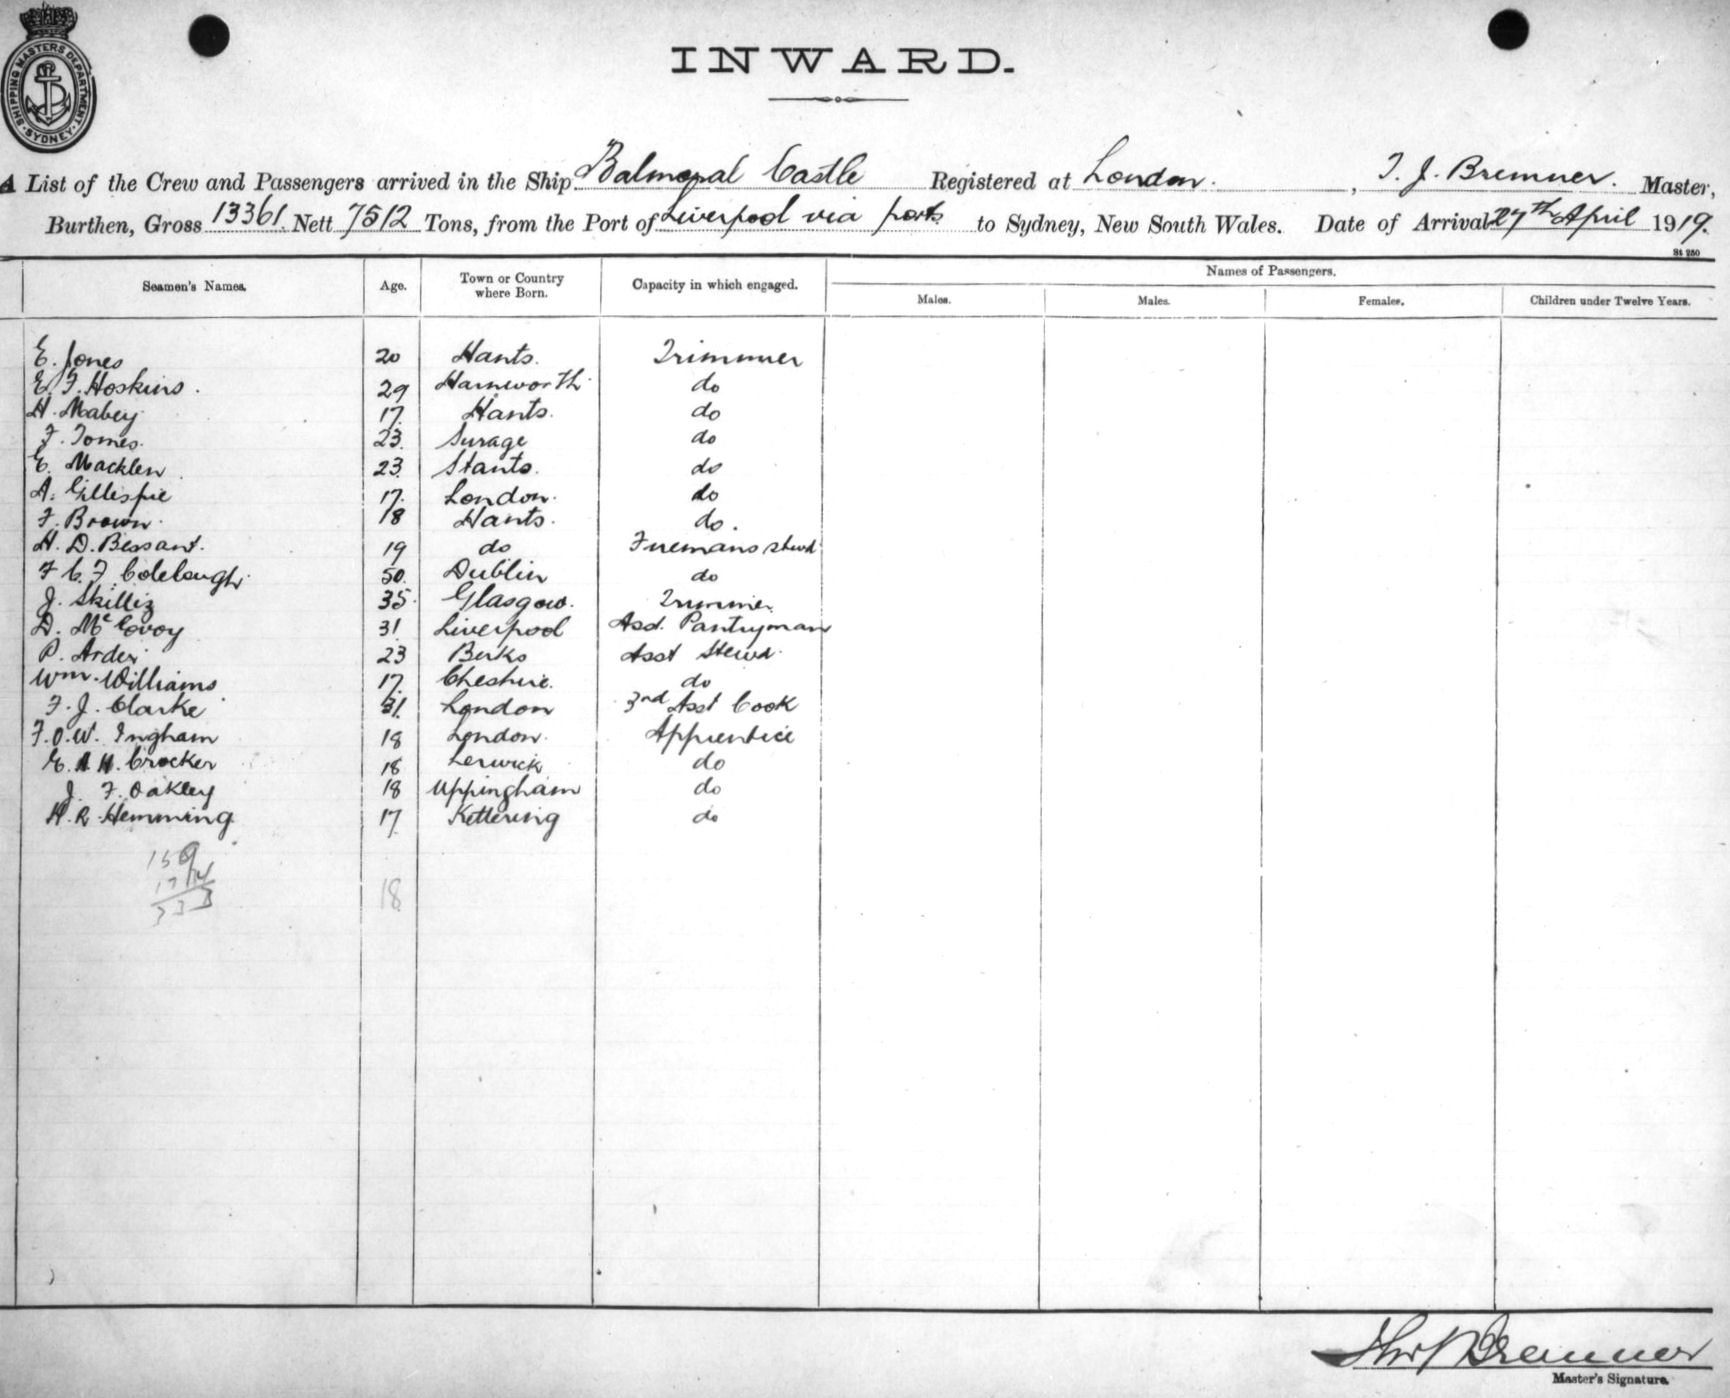 SHIPPING MASTERS DEPARTMENT
SYDNEY
INWARD.
A List of the Crew and Passengers arrived in the Ship Balmoral Castle Registered at London. , T. J. Bremner. Master,
Burthen, Gross 13361. Nett 7512 Tons, from the Port of Liverpool via ports to Sydney, New South Wales. Date of Arrival 27th April 1919.
St 250
Seamen's Names. Age. Town or Country where Born. Capacity in which engaged. Names of Passengers.
Males. Males. Females. Children under Twelve Years.
E. Jones 20 Hants. Trimmer
E. F. Hoskins. 29 Harnworth do
H. Mabey 17 Hants. do
F. Tomes. 23 do
E. Macklen 23 Hants. do
A. Gillespie 17 London. do
F. Brown. 18 Hants. do.
H. D. Bessant. 19 do Firemans stewd
F. C. F. Colebaugh. 50 Dublin do
J. Skilliz 35 Glasgow. Trimmer
D. McEvoy 31 Liverpool Asst. Pantryman
P. Arder 23 Berks Asst Stewd.
Wm. Williams 17 Cheshire. do
F. J. Clarke 31 London 3rd Asst Cook
F. O. W. Ingham 18 London. Apprentice
E. A. H. Crocker 18 Lerwick do
J. F. Oakley 18 Uppingham do
H. R. Hemming 17 Kettering do
18
Master's Signature.